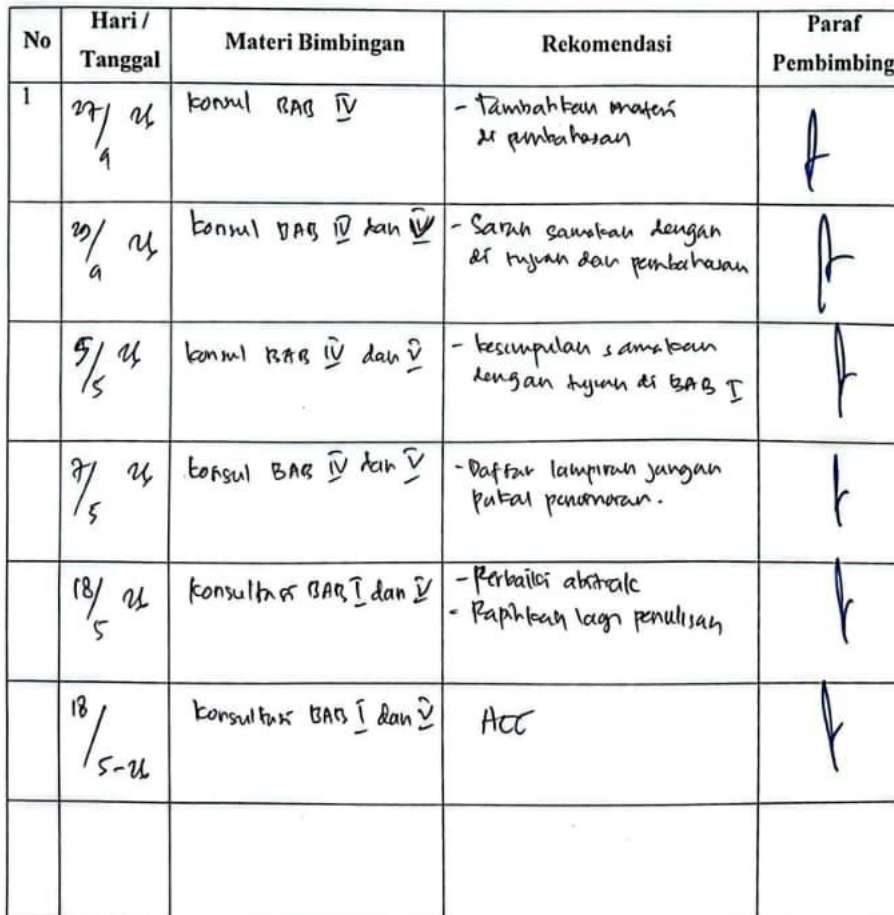 No
Hari /
Tanggal
Materi Bimbingan
Rekomendasi
Paraf
Pembimbing
1
27/
konsul BAB IV
- Tambahkan materi
di pembahasan
konsul BAB IV dan V
- Saran samakan dengan
di tujuan dan pembahasan
5/5
konsul BAB IV dan V
- kesimpulan samakan
dengan tujuan di BAB I
7/5
konsul BAB IV dan V
- Daftar lampiran jangan
pakai penomoran.
18/5
konsultasi BAB I dan V
- Perbaiki abstrak
- Rapihkan lagi penulisan
18/5
konsultasi BAB I dan V
ACC